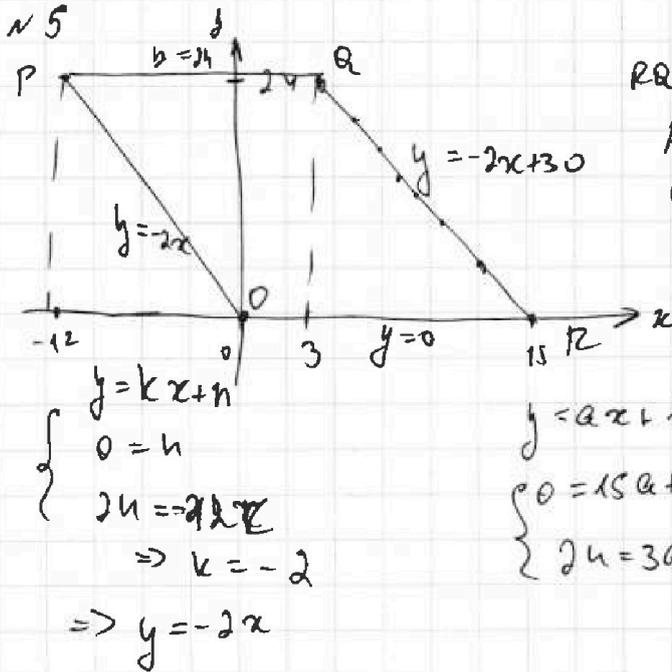 № 5
y
P
b = 24
Q
24
RQ
y = -2x+30
y = -2x
O
x
-12
0
3
y=0
15 R
y = kx+n
0 = n
24 = -12k
=> k = -2
=> y = -2x
y = ax+
0 = 15a+
24 = 3a